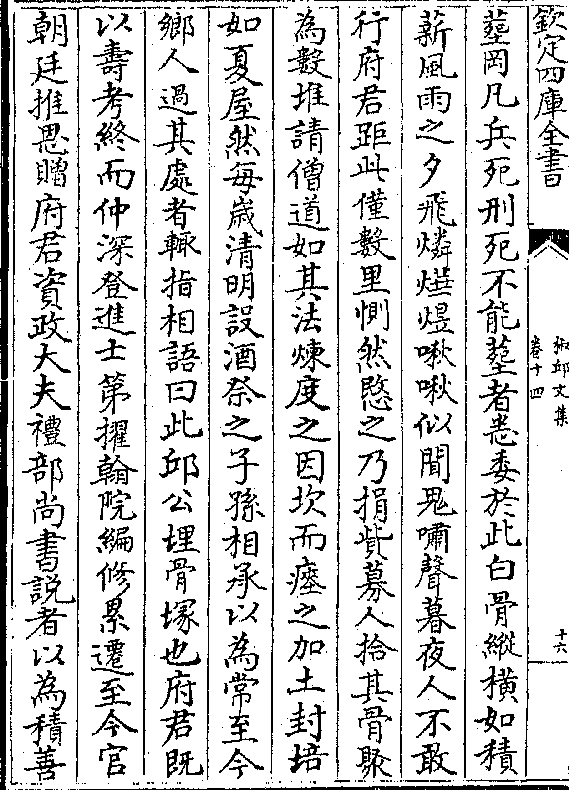 欽定四庫全書
椒邱文集
卷十四
十六
塟岡凡兵死刑死不能塟者悉委於此白骨縱橫如積
薪風雨之夕飛燐熠煜啾啾似聞鬼嘯聲暮夜人不敢
行府君距此僅數里惻然愍之乃捐貲募人拾其骨聚
為數堆請僧道如其法煉度之因坎而瘞之加土封培
如夏屋然每歳清明設酒祭之子孫相承以為常至今
鄉人過其處者輒指相語曰此邱公埋骨塚也府君既
以壽考終而仲深登進士第擢翰院編修累遷至今官
朝廷推恩贈府君資政大夫禮部尚書説者以為積善